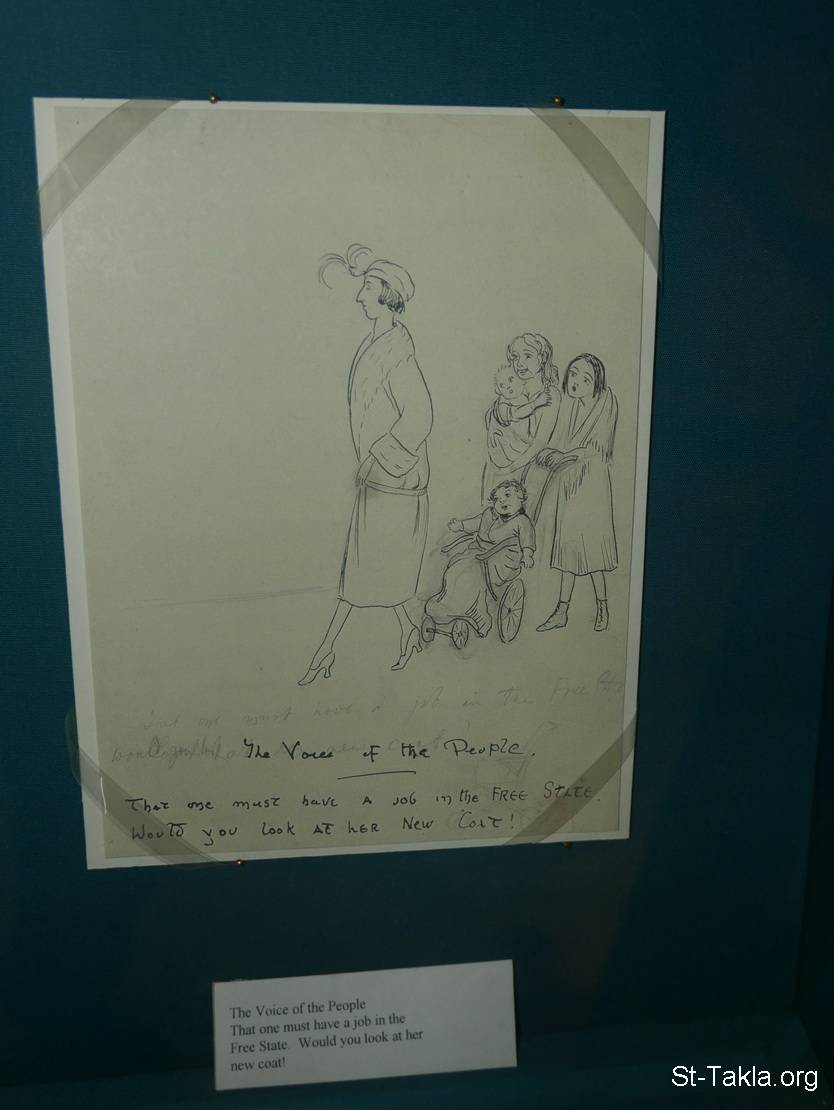 That one must have a job in the Free
The Voice of the People.
That one must have a job in the FREE STATE.
Would you look at her New Coat!
The Voice of the People
That one must have a job in the
Free State. Would you look at her
new coat!
St-Takla.org